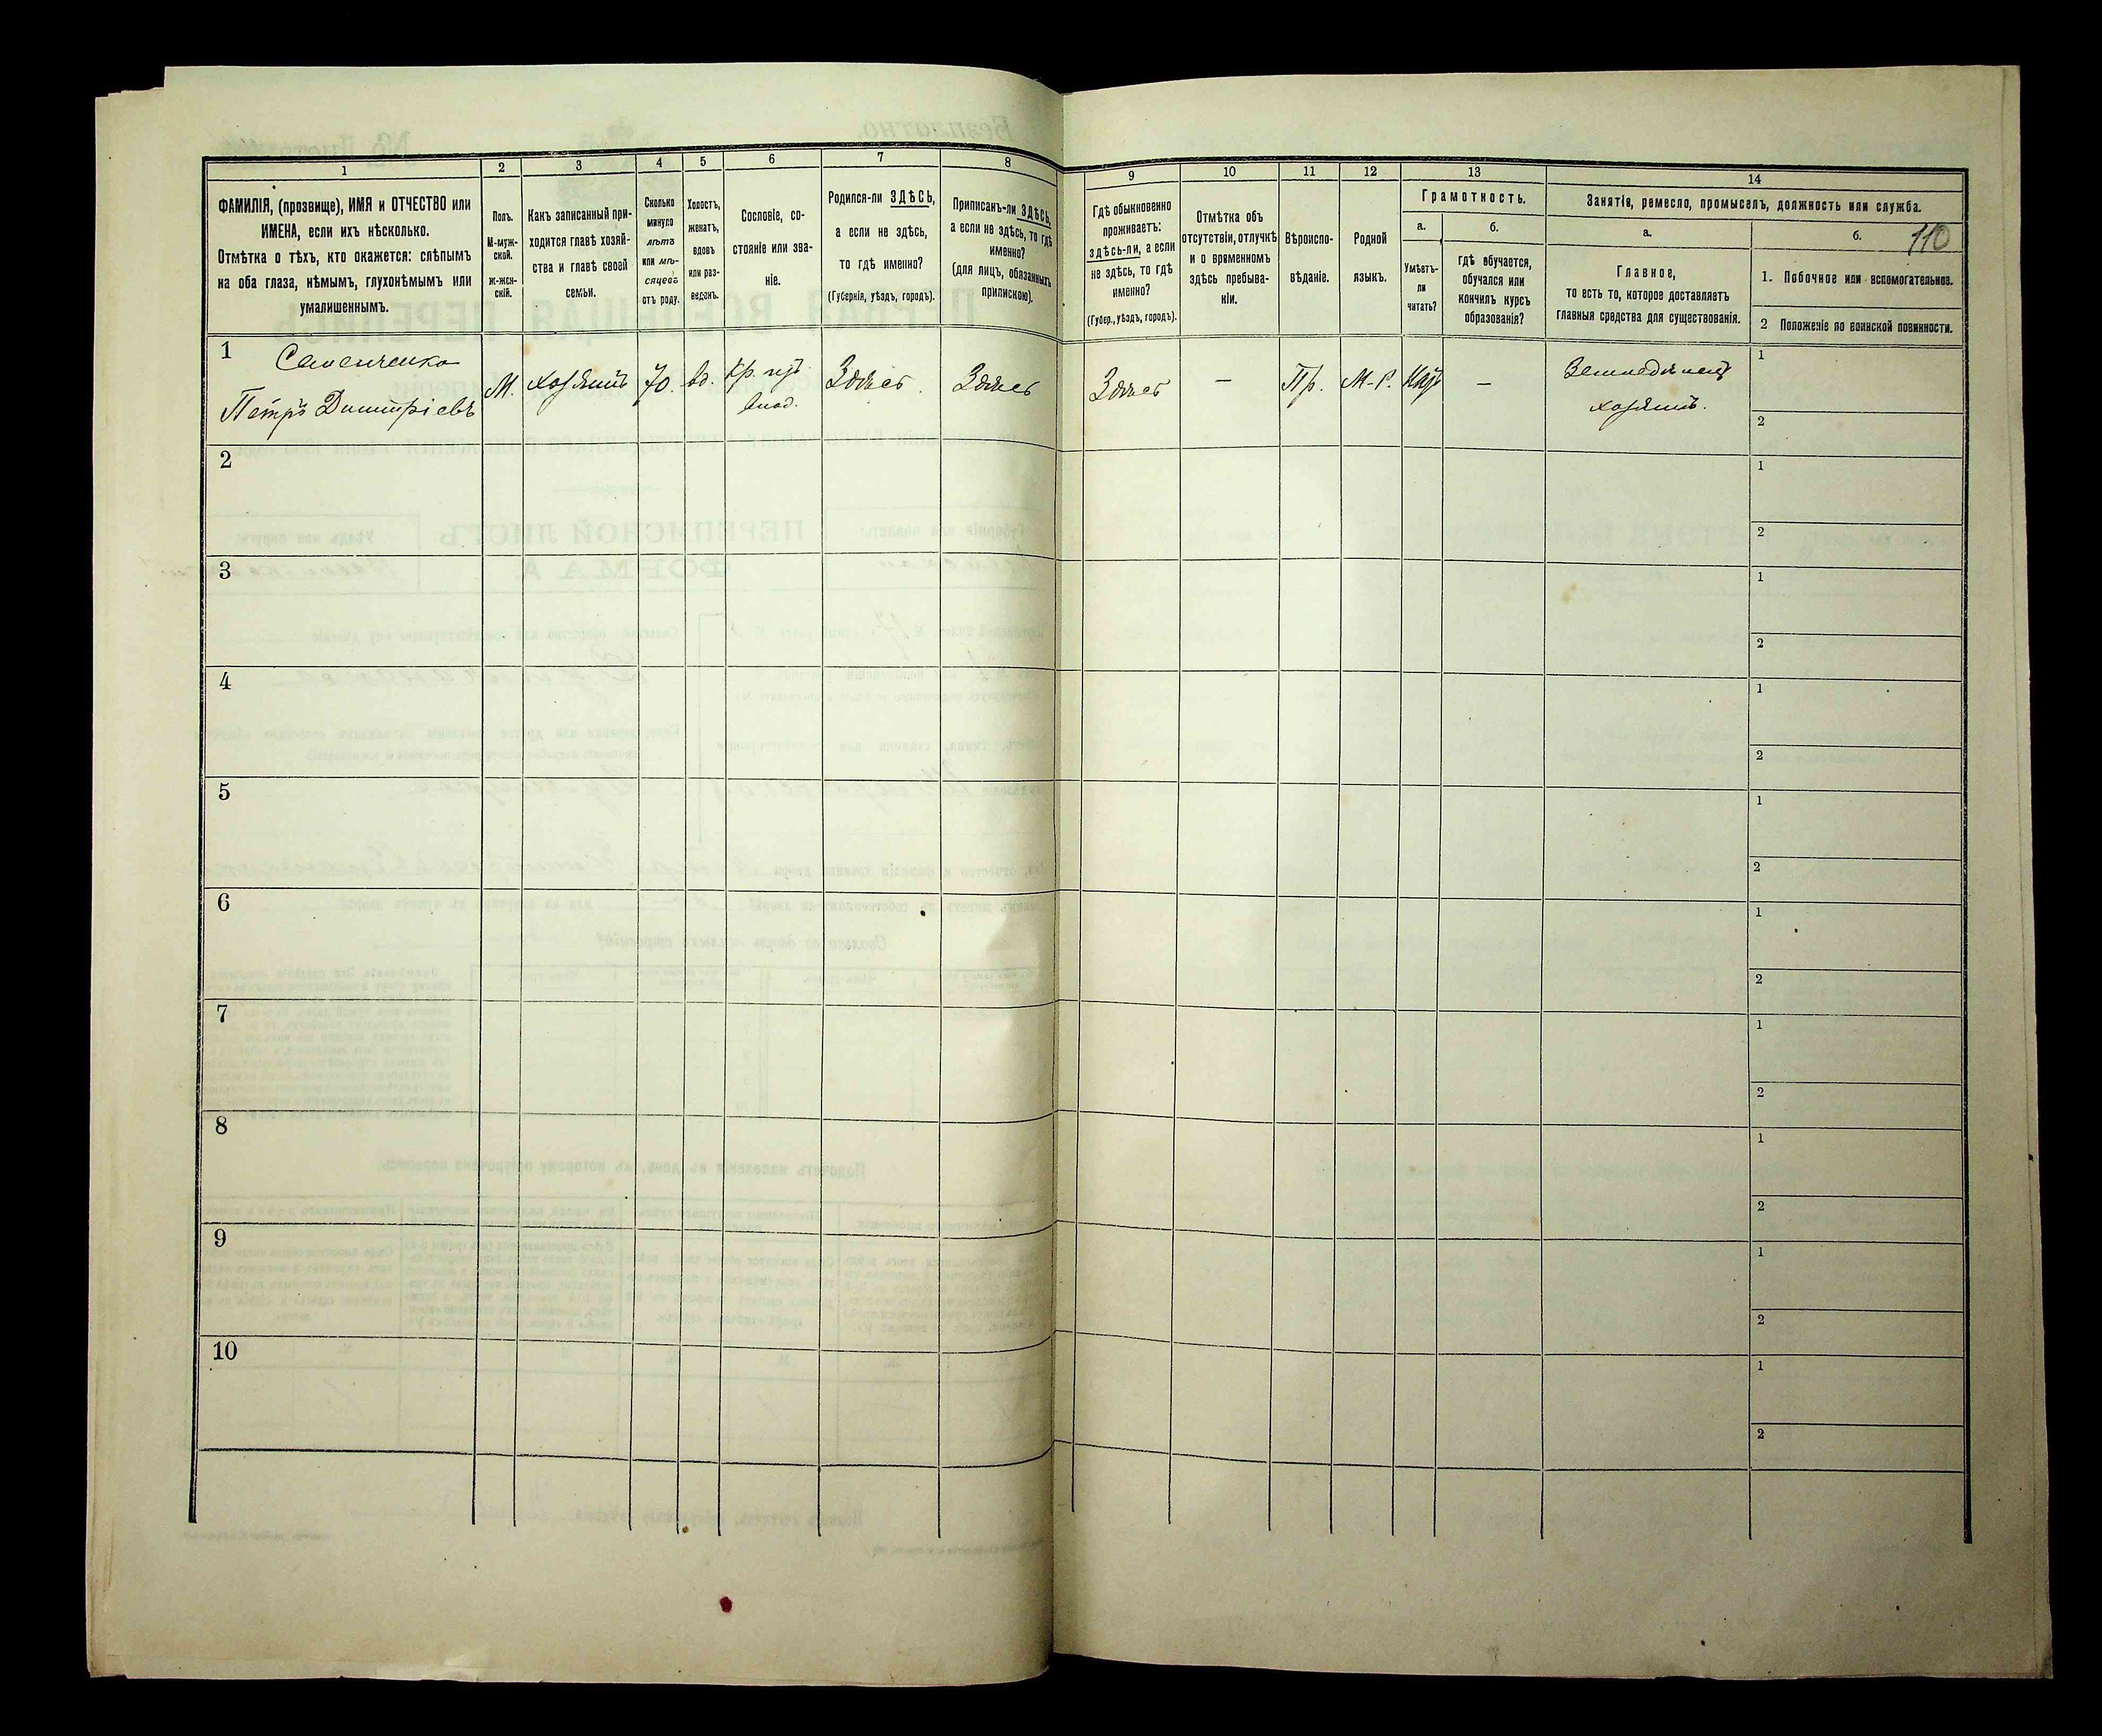 1
2
3
4
5
6
7
8
ФАМИЛІЯ, (прозвище), ИМЯ и ОТЧЕСТВО или
ИМЕНА, если ихъ нѣсколько.
Отмѣтка о тѣхъ, кто окажется: слѣпымъ
на оба глаза, нѣмымъ, глухонѣмымъ или
умалишеннымъ.
Полъ.
М-муж-
ской.
ж-жен-
скій.
Какъ записанный при-
ходится главѣ хозяй-
ства и главѣ своей
семьи.
Сколько
минуло
лѣтъ
или мѣ-
сяцевъ
отъ роду.
Холостъ,
женатъ,
вдовъ
или раз-
веденъ.
Сословіе, со-
стояніе или зва-
ніе.
Родился-ли ЗДѢСЬ,
а если не здѣсь,
то гдѣ именно?
(Губернія, уѣздъ, городъ).
Приписанъ-ли ЗДѢСЬ,
а если не здѣсь, то гдѣ
именно?
(для лицъ, обязанныхъ
припискою).
1
Семенченко
Петръ Димитріевъ
М.
хозяинъ
70.
вд.
Кр. изъ
влад.
Здѣсь
Здѣсь
2
3
4
5
6
7
8
9
10
9
10
11
12
13
14
Гдѣ обыкновенно
проживаетъ:
здѣсь-ли, а если
не здѣсь, то гдѣ
именно?
(Губер., уѣздъ, городъ).
Отмѣтка объ
отсутствіи, отлучкѣ
и о временномъ
здѣсь пребыва-
ніи.
Вѣроиспо-
вѣданіе.
Родной
языкъ.
Грамотность.
а.
б.
Умѣетъ-
ли
читать?
гдѣ обучается,
обучался или
кончилъ курсъ
образованія?
Занятіе, ремесло, промыселъ, должность или служба.
а.
б.
110
Главное,
то есть то, которое доставляетъ
главныя средства для существованія.
1. Побочное или вспомогательное.
2 Положеніе по воинской повинности.
Здѣсь
—
Пр.
М-Р.
—
Земледѣлецъ
хозяинъ.
1
2
1
2
1
2
1
2
1
2
1
2
1
2
1
2
1
2
1
2